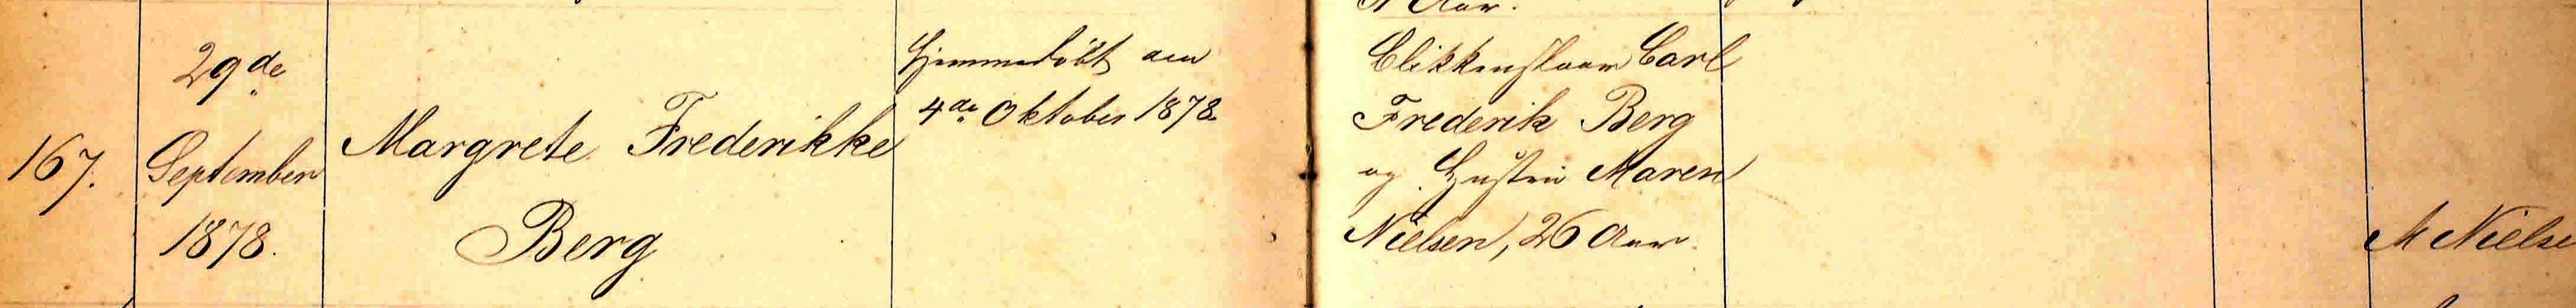 167.
29de
September
1878.
Margrete Frederikke
Berg
Hjemmedöbt den
4de Oktober 1878.
Aar.
Blikkenslager Carl
Frederik Berg
og Hustru Maren
Nielsen, 26 Aar.
M Nielse